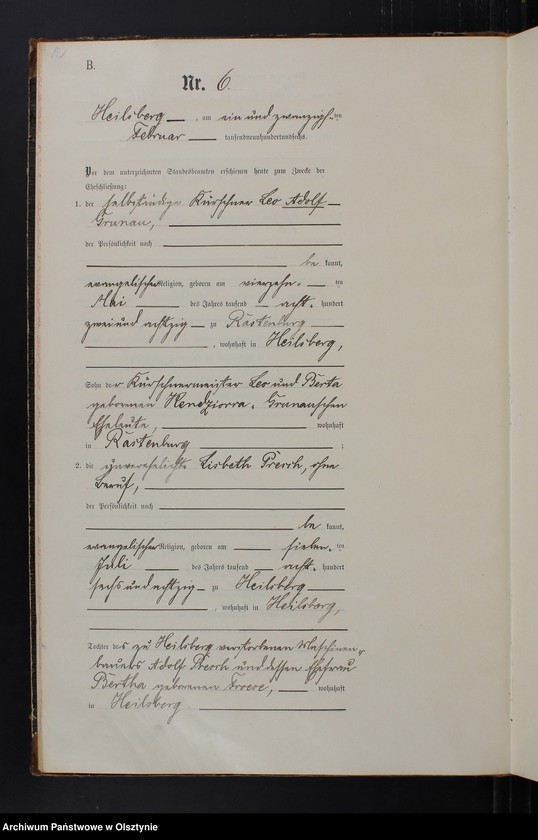 B.
Nr. 6.
Heilsberg, am ein und zwanzigsten
Februar tausendneunhundertundsechs.
Vor dem unterzeichneten Standesbeamten erschienen heute zum Zwecke der
Eheschließung:
1. der selbständige Kürschner Leo Adolf
Grunau,
der Persönlichkeit nach
be kannt,
evangelischer Religion, geboren am vierzehn-ten
Mai des Jahres tausend acht hundert
zwei und achtzig zu Rastenburg
, wohnhaft in Heilsberg,
Sohn der Kürschnermeister Leo und Berta
geborenen Kendziorra, Grunauschen
Eheleute, wohnhaft
in Rastenburg ;
2. die unverehelichte Lisbeth Presch, ohne
Beruf,
der Persönlichkeit nach
be kannt,
evangelischer Religion, geboren am sieben-ten
Juli des Jahres tausend acht hundert
sechs und achtzig zu Heilsberg
, wohnhaft in Heilsberg,
Tochter des zu Heilsberg verstorbenen Maschinen-
bauers Adolf Presch und dessen Ehefrau
Bertha geborenen wohnhaft
in Heilsberg.
Archiwum Państwowe w Olsztynie